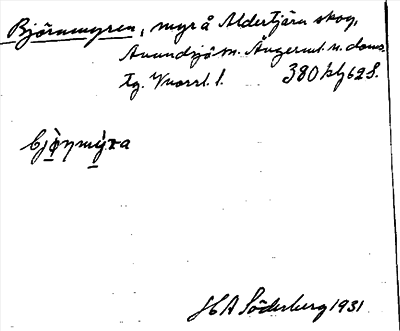 Björnmyren, myr å Aldertjärn skog,
Anundsjö sn. Ångerml. n. doms.
tg. Vnorrl. l. 380
bjö̀ṇmỳra
HA Söderberg 1931